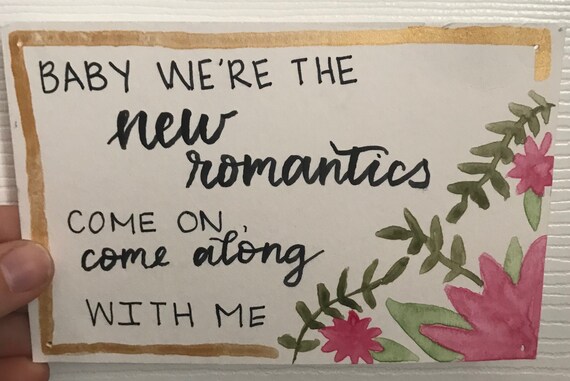 BABY WE'RE THE
new
romantics
COME ON,
come along
WITH ME